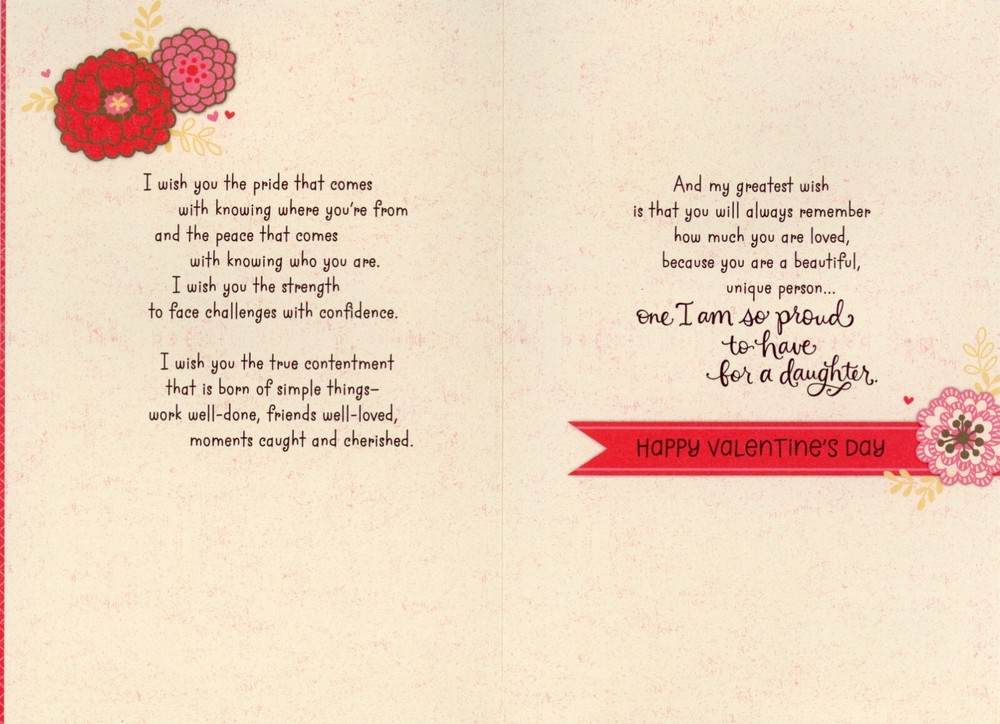 I wish you the pride that comes
with knowing where you're from
and the peace that comes
with knowing who you are.
I wish you the strength
to face challenges with confidence.
I wish you the true contentment
that is born of simple things–
work well-done, friends well-loved,
moments caught and cherished.
And my greatest wish
is that you will always remember
how much you are loved,
because you are a beautiful,
unique person...
one I am so proud
to have
for a daughter.
HAPPY VALENTINE'S DAY